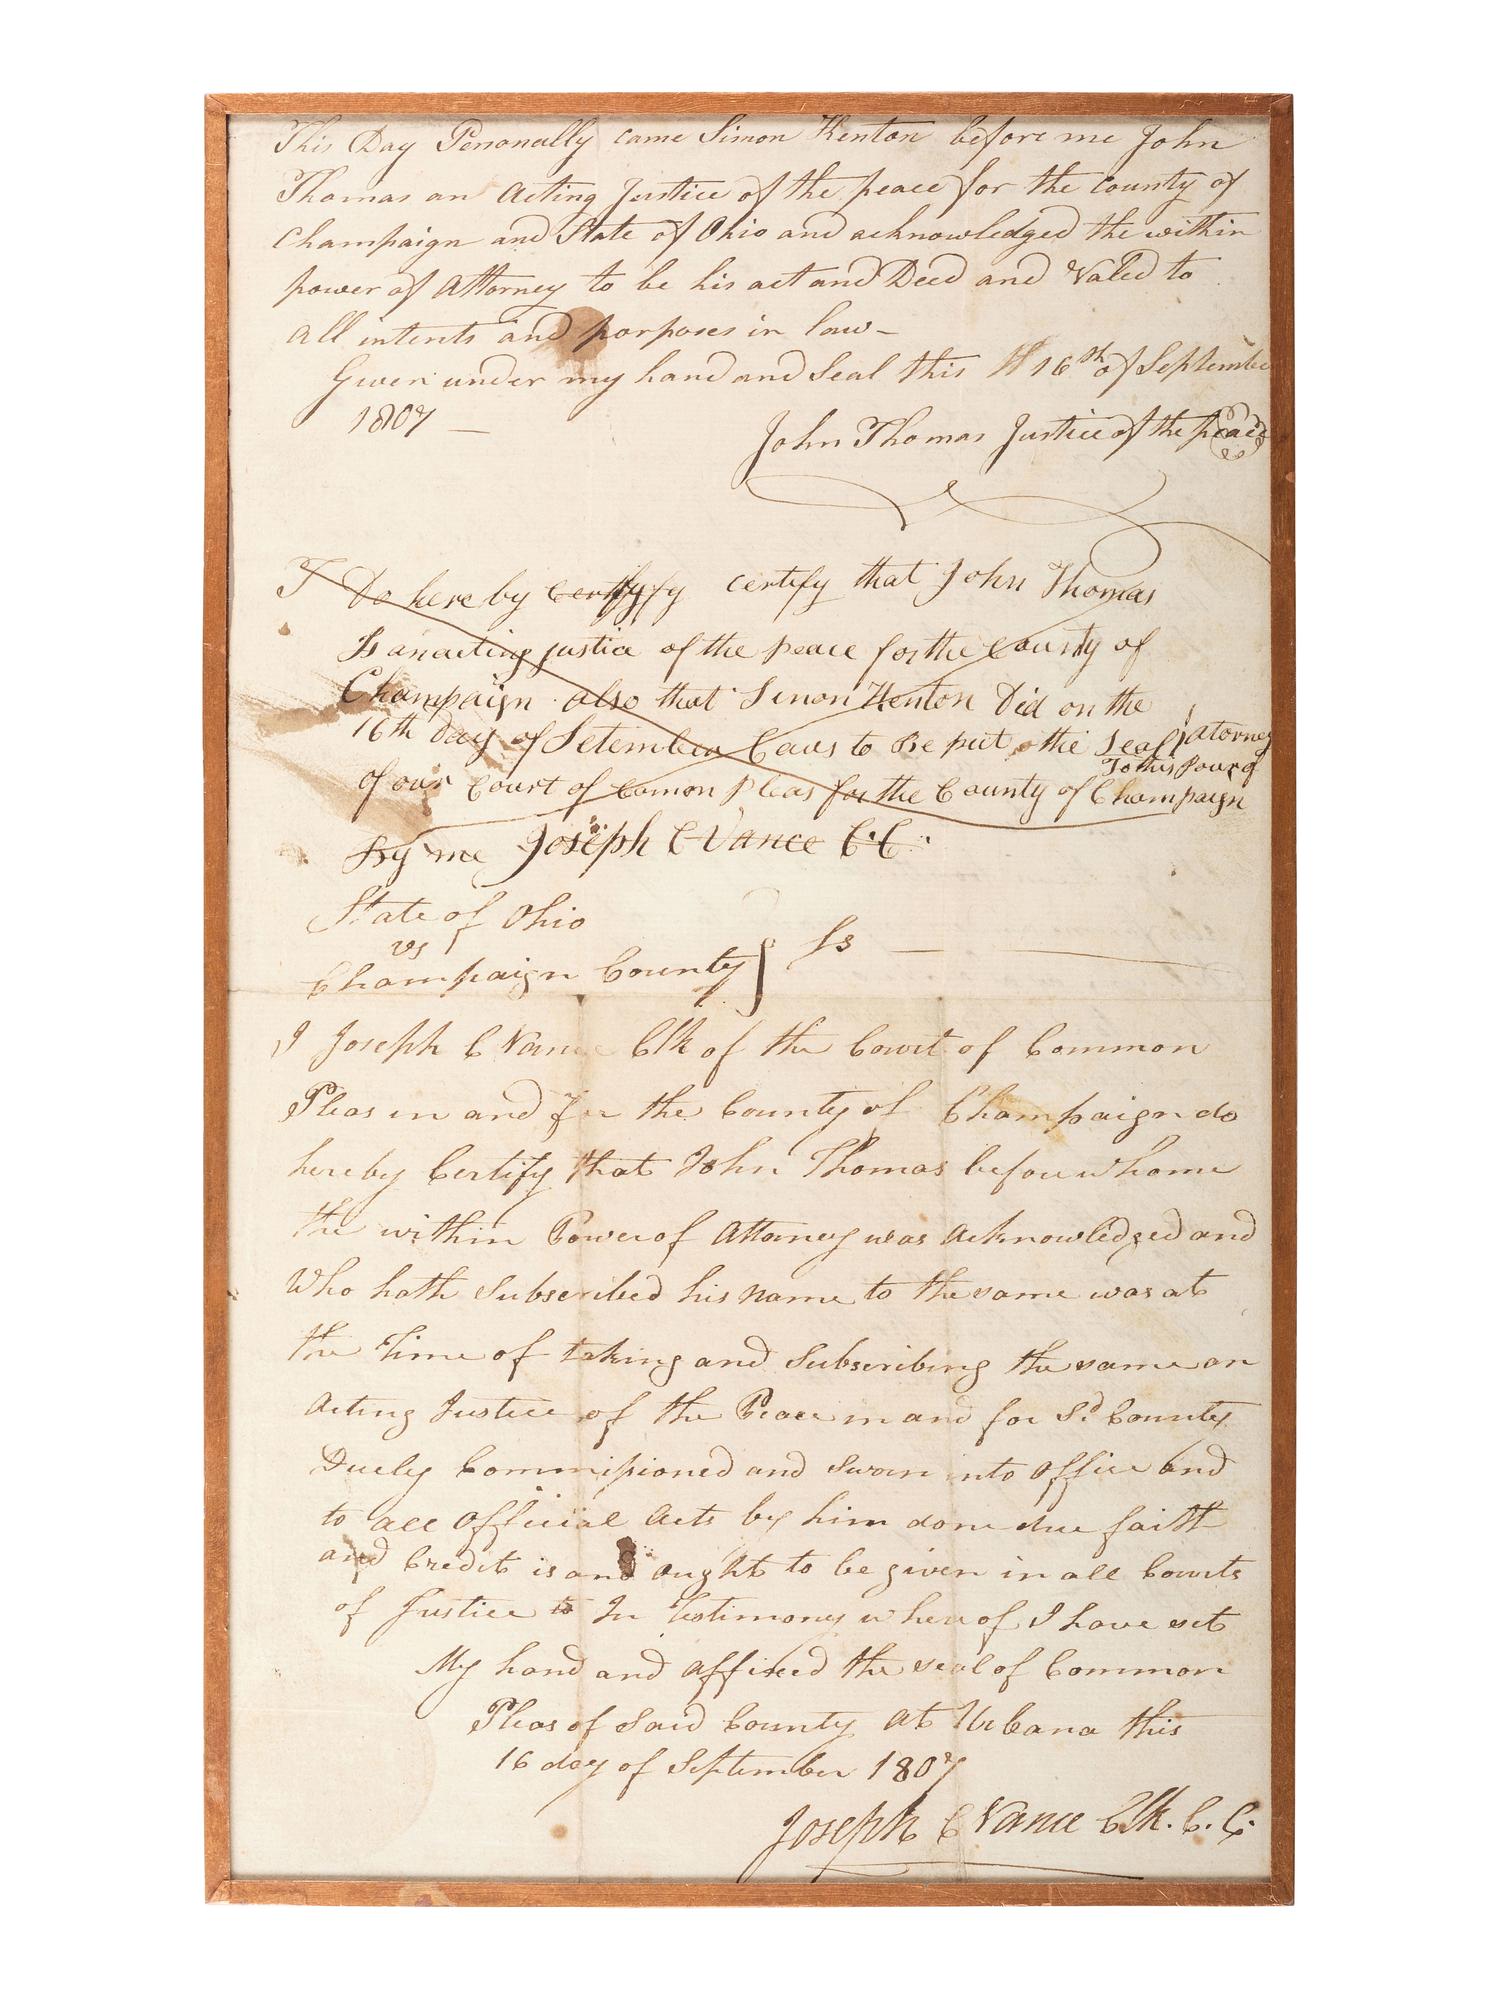 This Day Personally came Simon Kenton before me John
Thomas an Acting Justice of the peace for the county of
Champaign and State of Ohio and acknowledged the within
power of Attorney to be his act and Deed and Valed to
all intents and porposes in law –
Given under my hand and Seal this 16th of September
1807 –
John Thomas Justice of the peace
I Do here by certify that John Thomas
Is an acting justice of the peace for the County of
Champaign also that Simon Kenton Did on the
16th day of Setember Caus to Be put the Seal Attorney
To this Pour of
of our Court of Comon Pleas for the County of Champaign
By me Joseph C Vance C.C.
State of Ohio
vs
Champaign County } Ss —
I Joseph C Vance Clk of the Court of Common
Pleas in and For the County of Champaign do
hereby Certify that John Thomas before whome
the within Power of Attorney was Acknowledged and
Who hath Subscribed his name to the same was at
the Time of taking and Subscribing the same an
Acting Justice of the Peace in and for Sd County
Duely Commissioned and sworn into office and
to all Official Acts by him done due faith
and Credit is and ought to be given in all Courts
of Justice In Testimony whereof I have set
My hand and affixed the seal of Common
Pleas of Said County At Urbana this
16 day of September 1807
Joseph C Vance Clk. C. C.